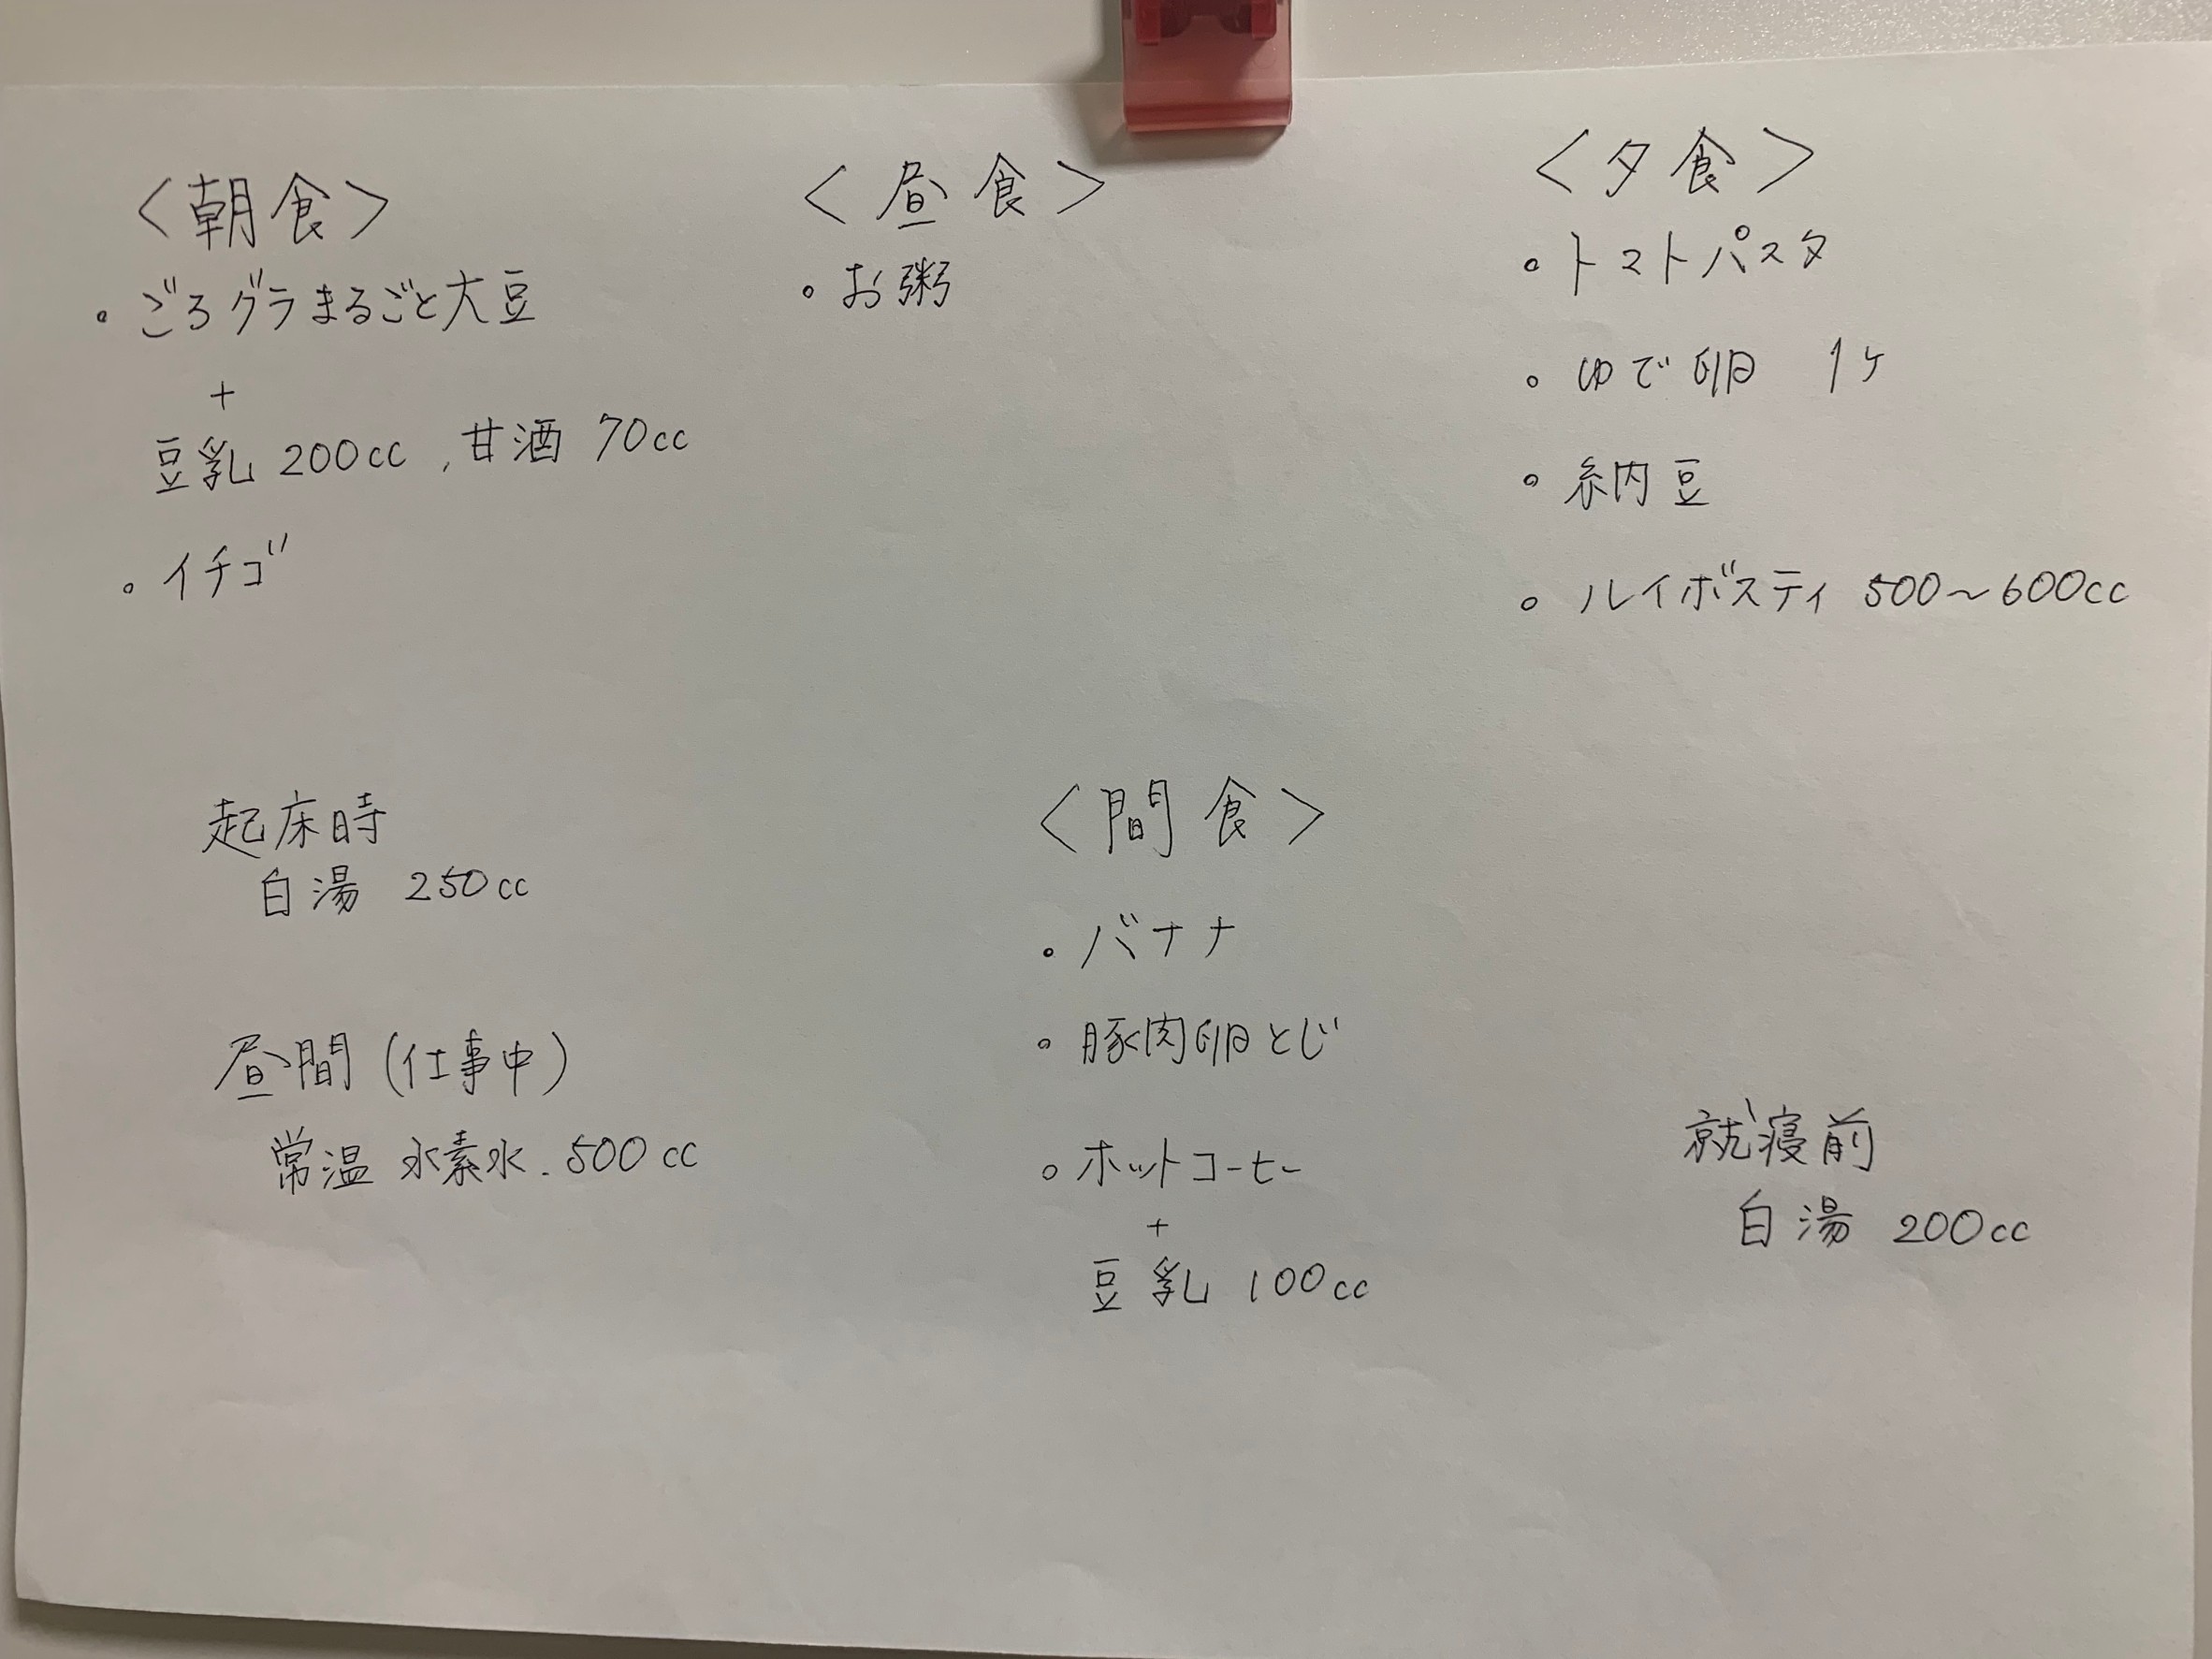 ＜朝食＞
・ごろグラまるごと大豆
+
豆乳 200cc , 甘酒 70cc
・イチゴ
＜昼食＞
・お粥
＜夕食＞
・トマトパスタ
・ゆで卵 1ヶ
・納豆
・ルイボスティ 500〜600cc
起床時
白湯 250cc
昼間 (仕事中)
常温 水素水. 500cc
＜間食＞
・バナナ
・豚肉卵とじ
・ホットコーヒー
+
豆乳 100cc
就寝前
白湯 200cc